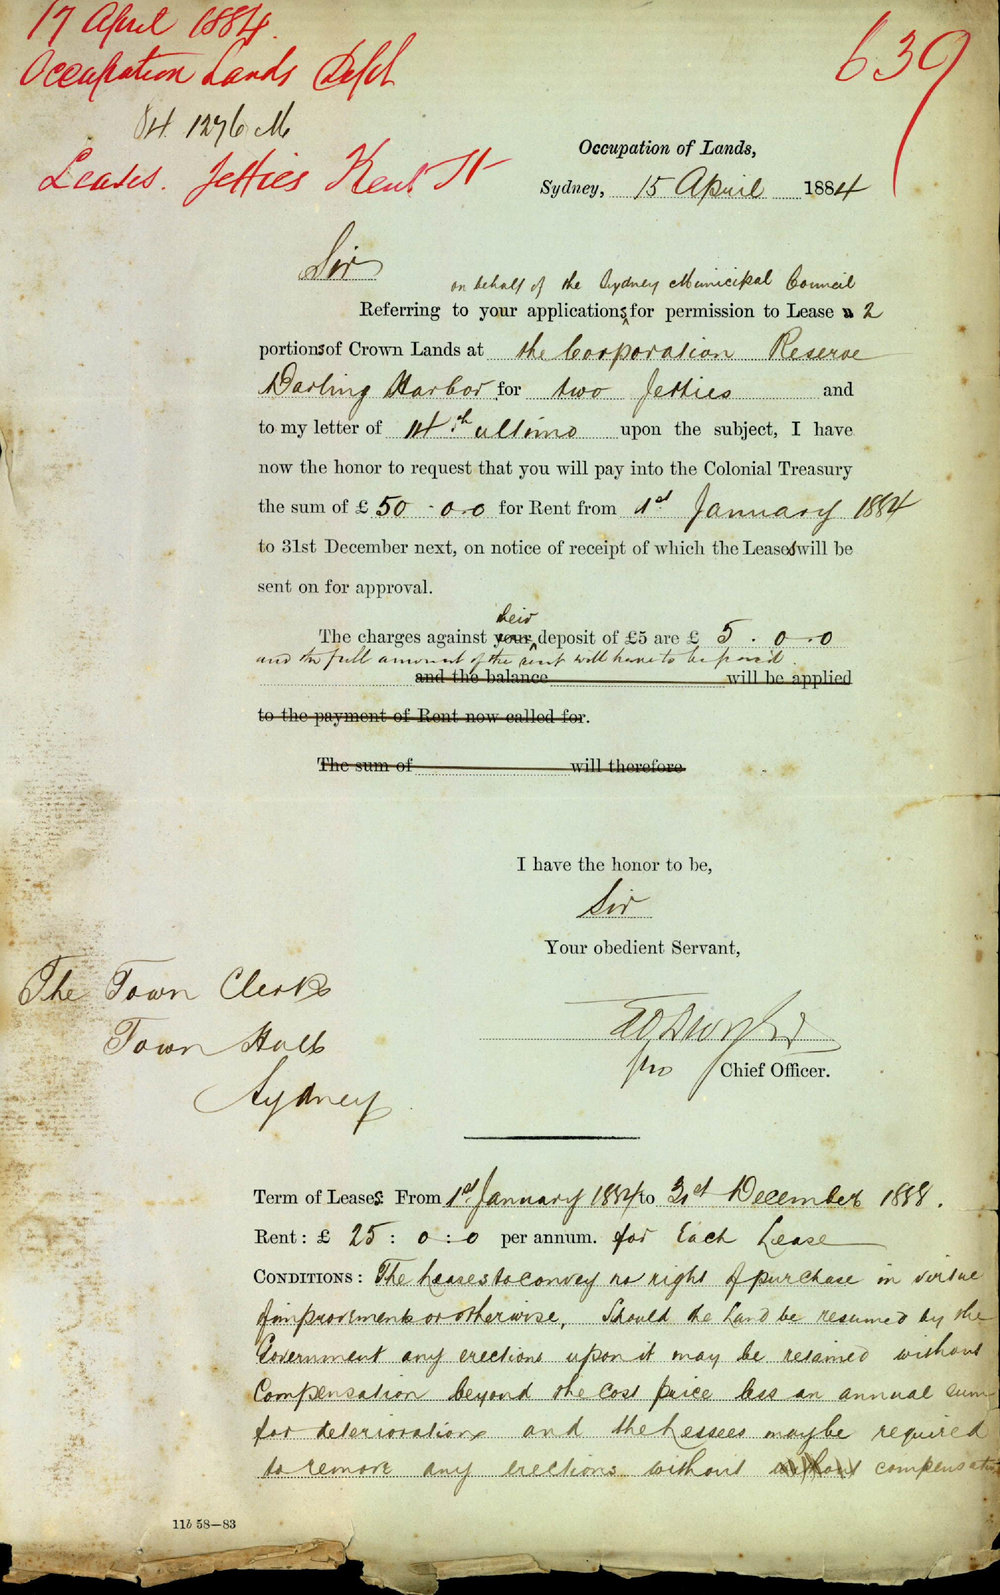 17 April 1884.
Occupation Lands Dept
639
84 1276 M
Leases. Jetties Kent St
Occupation of Lands,
Sydney, 15 April 1884
Sir
on behalf of the Sydney Municipal Council
Referring to your applications for permission to Lease a 2
portions of Crown Lands at the Corporation Reserve
Darling Harbor for two Jetties and
to my letter of 14th ultimo upon the subject, I have
now the honor to request that you will pay into the Colonial Treasury
the sum of £ 50 - 0.0 for Rent from 1st January 1884
to 31st December next, on notice of receipt of which the Leases will be
sent on for approval.
their
The charges against your deposit of £5 are £ 5 . 0 . 0
and the full amount of the rent will have to be paid.
and the balance will be applied
to the payment of Rent now called for.
The sum of will therefore
I have the honor to be,
Sir
Your obedient Servant,
The Town Clerk
Town Hall
Sydney
pro Chief Officer.
Term of Leases: From 1st January 1884 to 31st December 1888.
Rent: £ 25 : 0 : 0 per annum. for Each Lease
CONDITIONS: The Leases to convey no right of purchase in virtue
of improvements or otherwise, Should the Land be resumed by the
Government any erections upon it may be retained without
Compensation beyond the Cost price less an annual sum
for deterioration and the Lessees may be required
to remove any erections without without compensation
11b 58—83